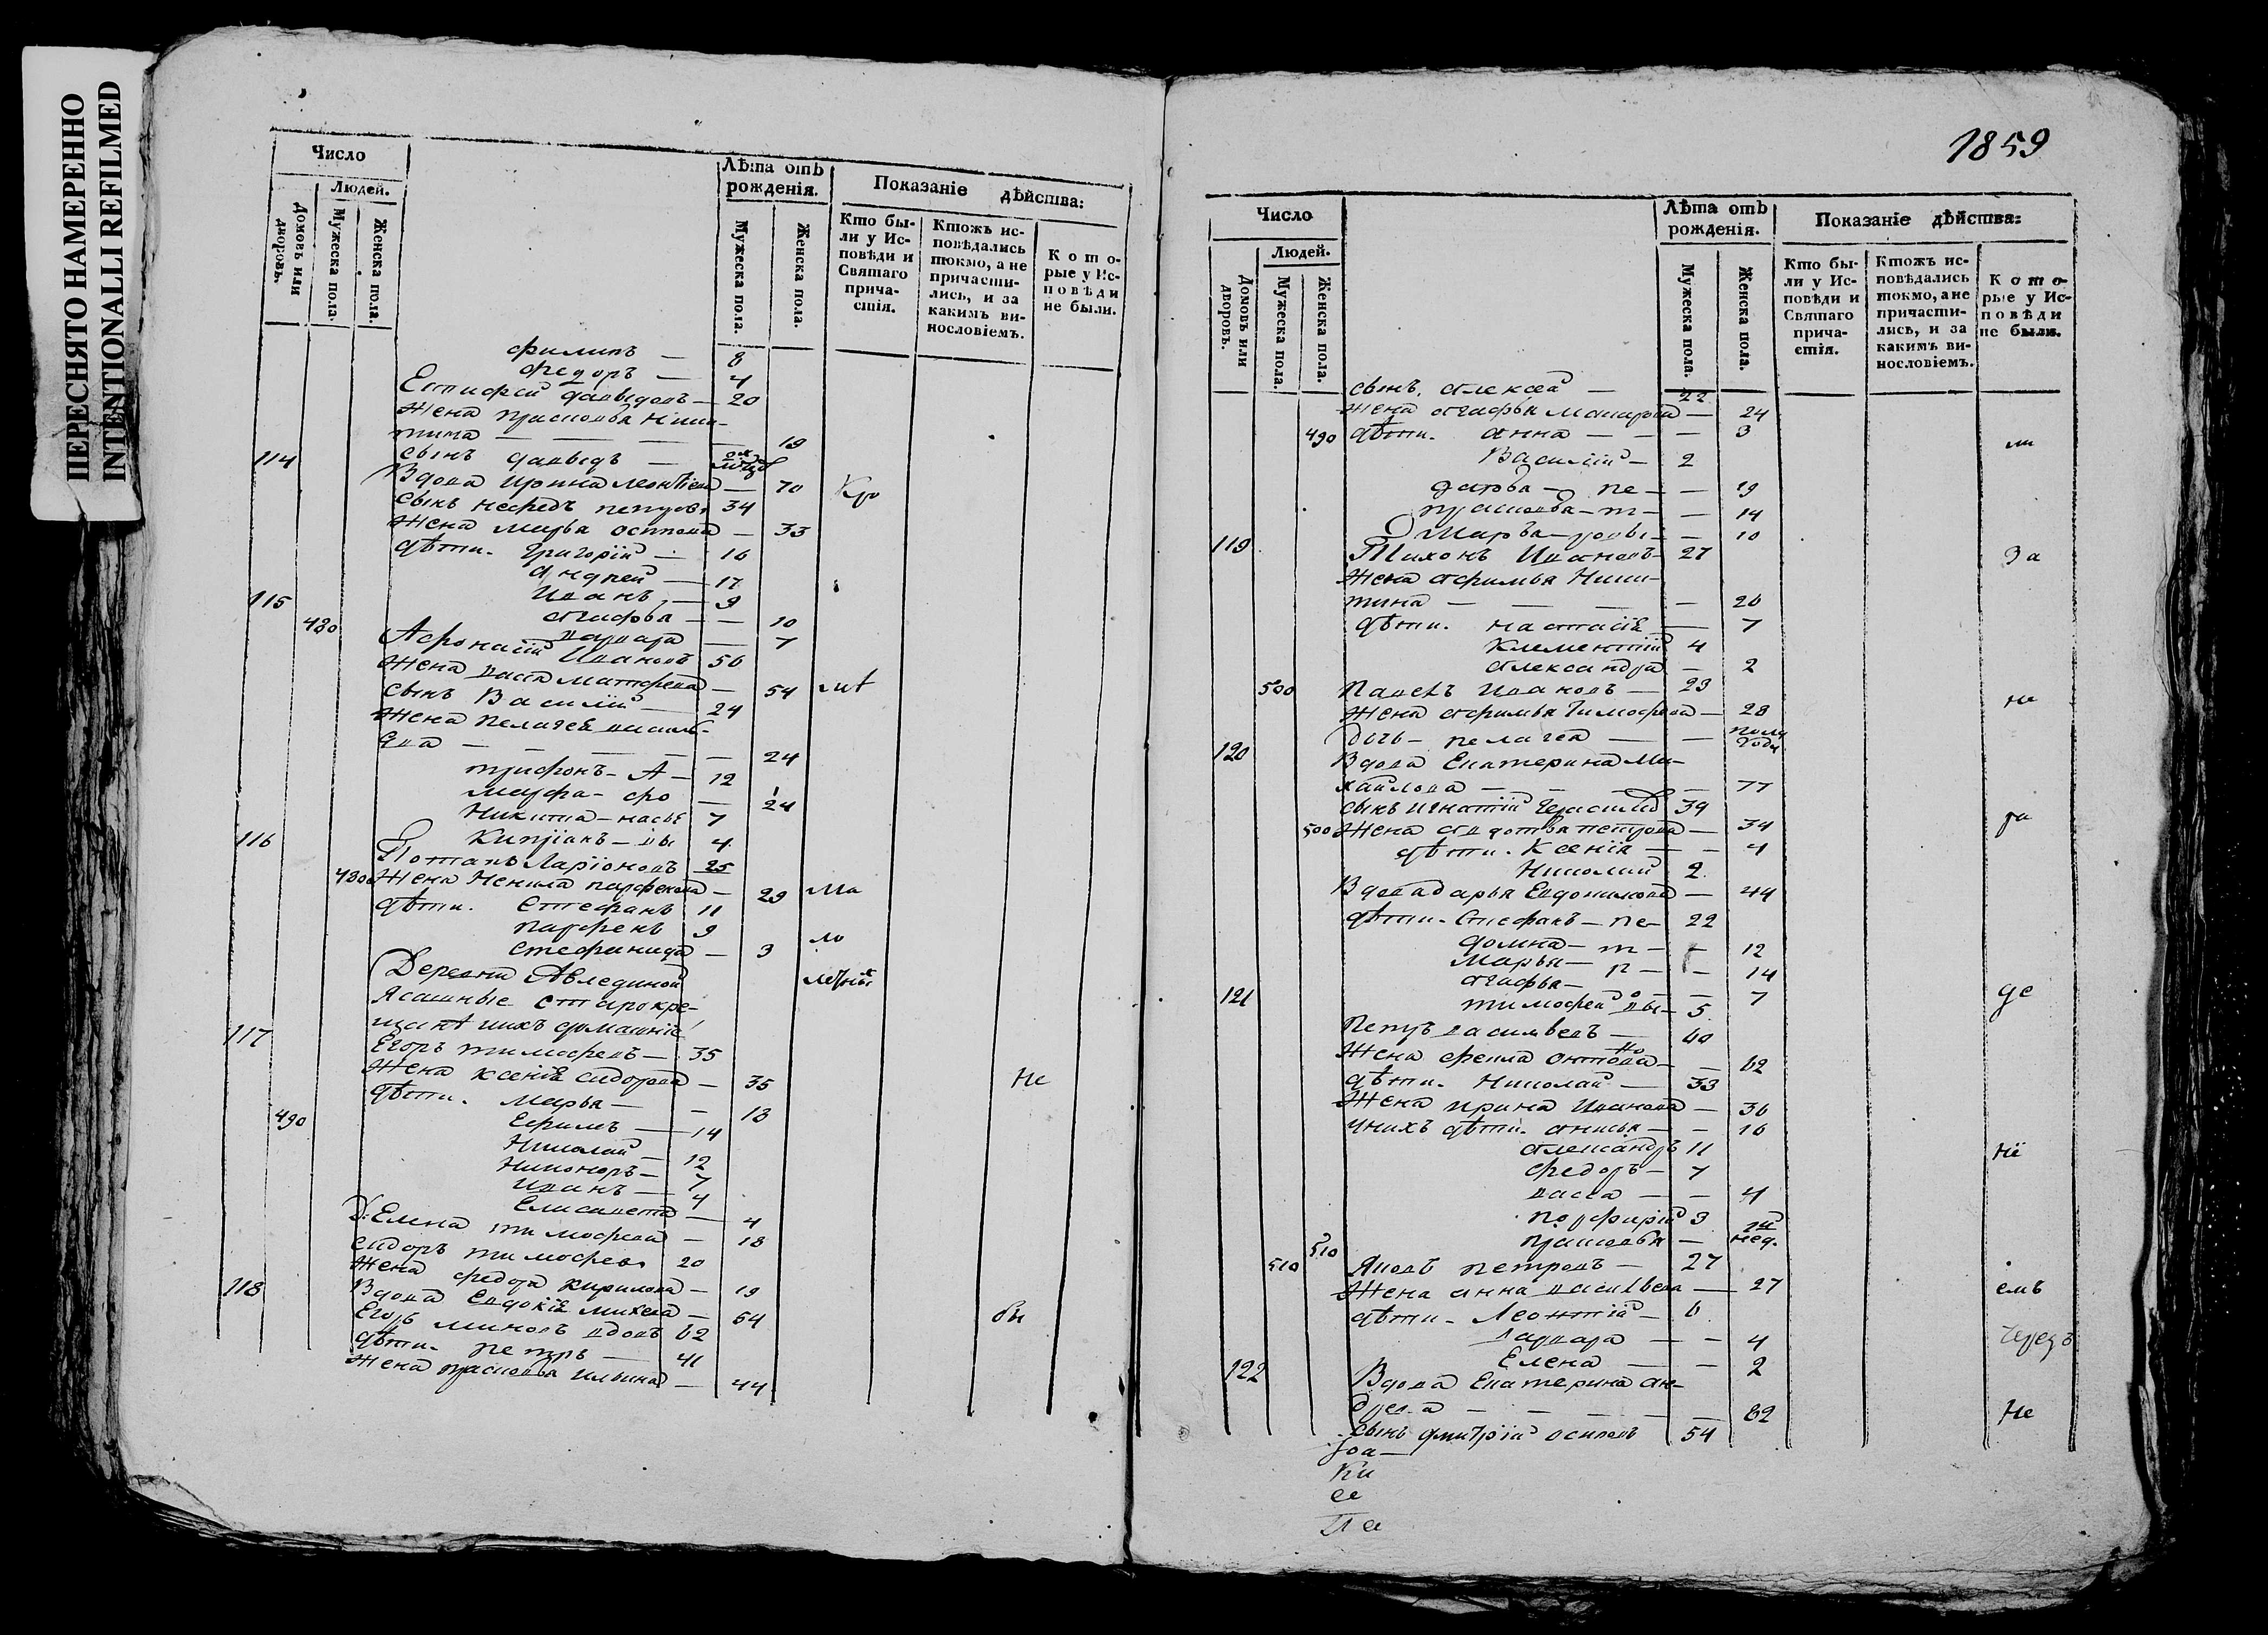 ПЕРЕСНЯТО НАМЕРЕННО
INTENTIONALLI REFILMED
Число
Людей.
Домовъ или дворовъ.
Мужеска пола.
Женска пола.
Лѣта отъ рожденія.
Мужеска пола.
Женска пола.
Показаніе дѣйства:
Кто бы-
ли у Ис-
повѣди и
Святаго
прича-
стія.
Ктожъ ис-
повѣдались
токмо, а не
причасти-
лись, и за
какимъ ви-
нословіемъ.
Кото-
рые у Ис-
повѣди
не были.
филипъ — 8
федоръ — 4
Евтифей давыдовъ — 20
жена прасковья Ники-
тина — — — — 19
сынъ давыдъ —
114 Вдова Ирина леонтіева — 70 Кро
сынъ нефедъ петровъ 34
жена марья — 33
дѣти. Григорій — 16
андрей — 17
Иванъ — 9
агафья — — 10
варвара — 7
115 480 Афонасій Ивановъ 56
жена васса матфеева — 54 мѣ
сынъ Василій — 24
жена пелагея василь-
ева — — — — 24
трифонъ — А — 12
марфа — фо — 24
Никита — насье 7
Кипріанъ — вы 4
116 Потапъ Ларіоновъ 25
480 жена Ненила парфенова — 29 Ма
дѣти. Стефанъ 11
парфенъ 9
стефанида — 3 ло
Деревни Авлединой лѣтны
Ясашные старокре-
щане ихъ домашніе
117 Егоръ тимофеевъ — 35
жена ксенія сидорова — 35 Не
дѣти. марья — — 18
490 Ефимъ — 14
Николай — 12
Никоноръ — 7
Иванъ — 4
Елисавета — 4
Д. Елена тимофеева — 18
сидоръ тимофеевъ 20
жена федора кирилова — 19
118 Вдова Евдокія михеева — 64 бы
Егоръ миновъ вдовъ 62
дѣти. петръ — 41
жена прасковья ильина — 44
1859
Число
Людей.
Домовъ или дворовъ.
Мужеска пола.
Женска пола.
Лѣта отъ рожденія.
Мужеска пола.
Женска пола.
Показаніе дѣйства:
Кто бы-
ли у Ис-
повѣди и
Святаго
прича-
стія.
Ктожъ ис-
повѣдались
токмо, а не
причасти-
лись, и за
какимъ ви-
нословіемъ.
Кото-
рые у Ис-
повѣди
не были.
сынъ. алексей — 22
жена агафья макарова — 24
490 дѣти. анна — — — 3 ли
Василій — 2
дарья — пе — — 19
прасковья — т — — 14
Марья — ровы — — 10
119 Тихонъ Ивановъ 27 За
жена афимья Ники-
тина — — — — 26
дѣти. настасія — 7
Клементій 4
александра — 2
500 Павелъ Ивановъ — 23 не
жена афимья тимофеева — 28
Дочь — пелагея — — полу года
120 Вдова Екатерина Ми-
хайлова — — — — 77
сынъ игнатій Герасимовъ 39
500 жена авдотья петрова — 34 ра
дѣти. Ксенія — — 4
Николай 2
Вдова дарья Евдокимова — 44
дѣти. Стефанъ — пе — 22
домна — т — — 12
Марья — р — — 14
агафья — о — — 7
тимофей — вы — 5
121 Петръ васильевъ — 60 де
жена фекла — 62
дѣти. Николай — 33
жена ирина Иванова — 36
унихъ дѣти. анисья — — 10
александръ 11 нї
федоръ — 7
васса — — 4
порфирій 3
510 прасковья — нед.
510 Яковъ петровъ — 27
жена анна васильева — 27 емъ
дѣти. Леонтій — 6
варвара — — 4 Чрезъ
Елена — — 2
122 Вдова Екатерина ан-
дреева — — — — 82 Не
сынъ дмитрій осиповъ 54
Ки
ее